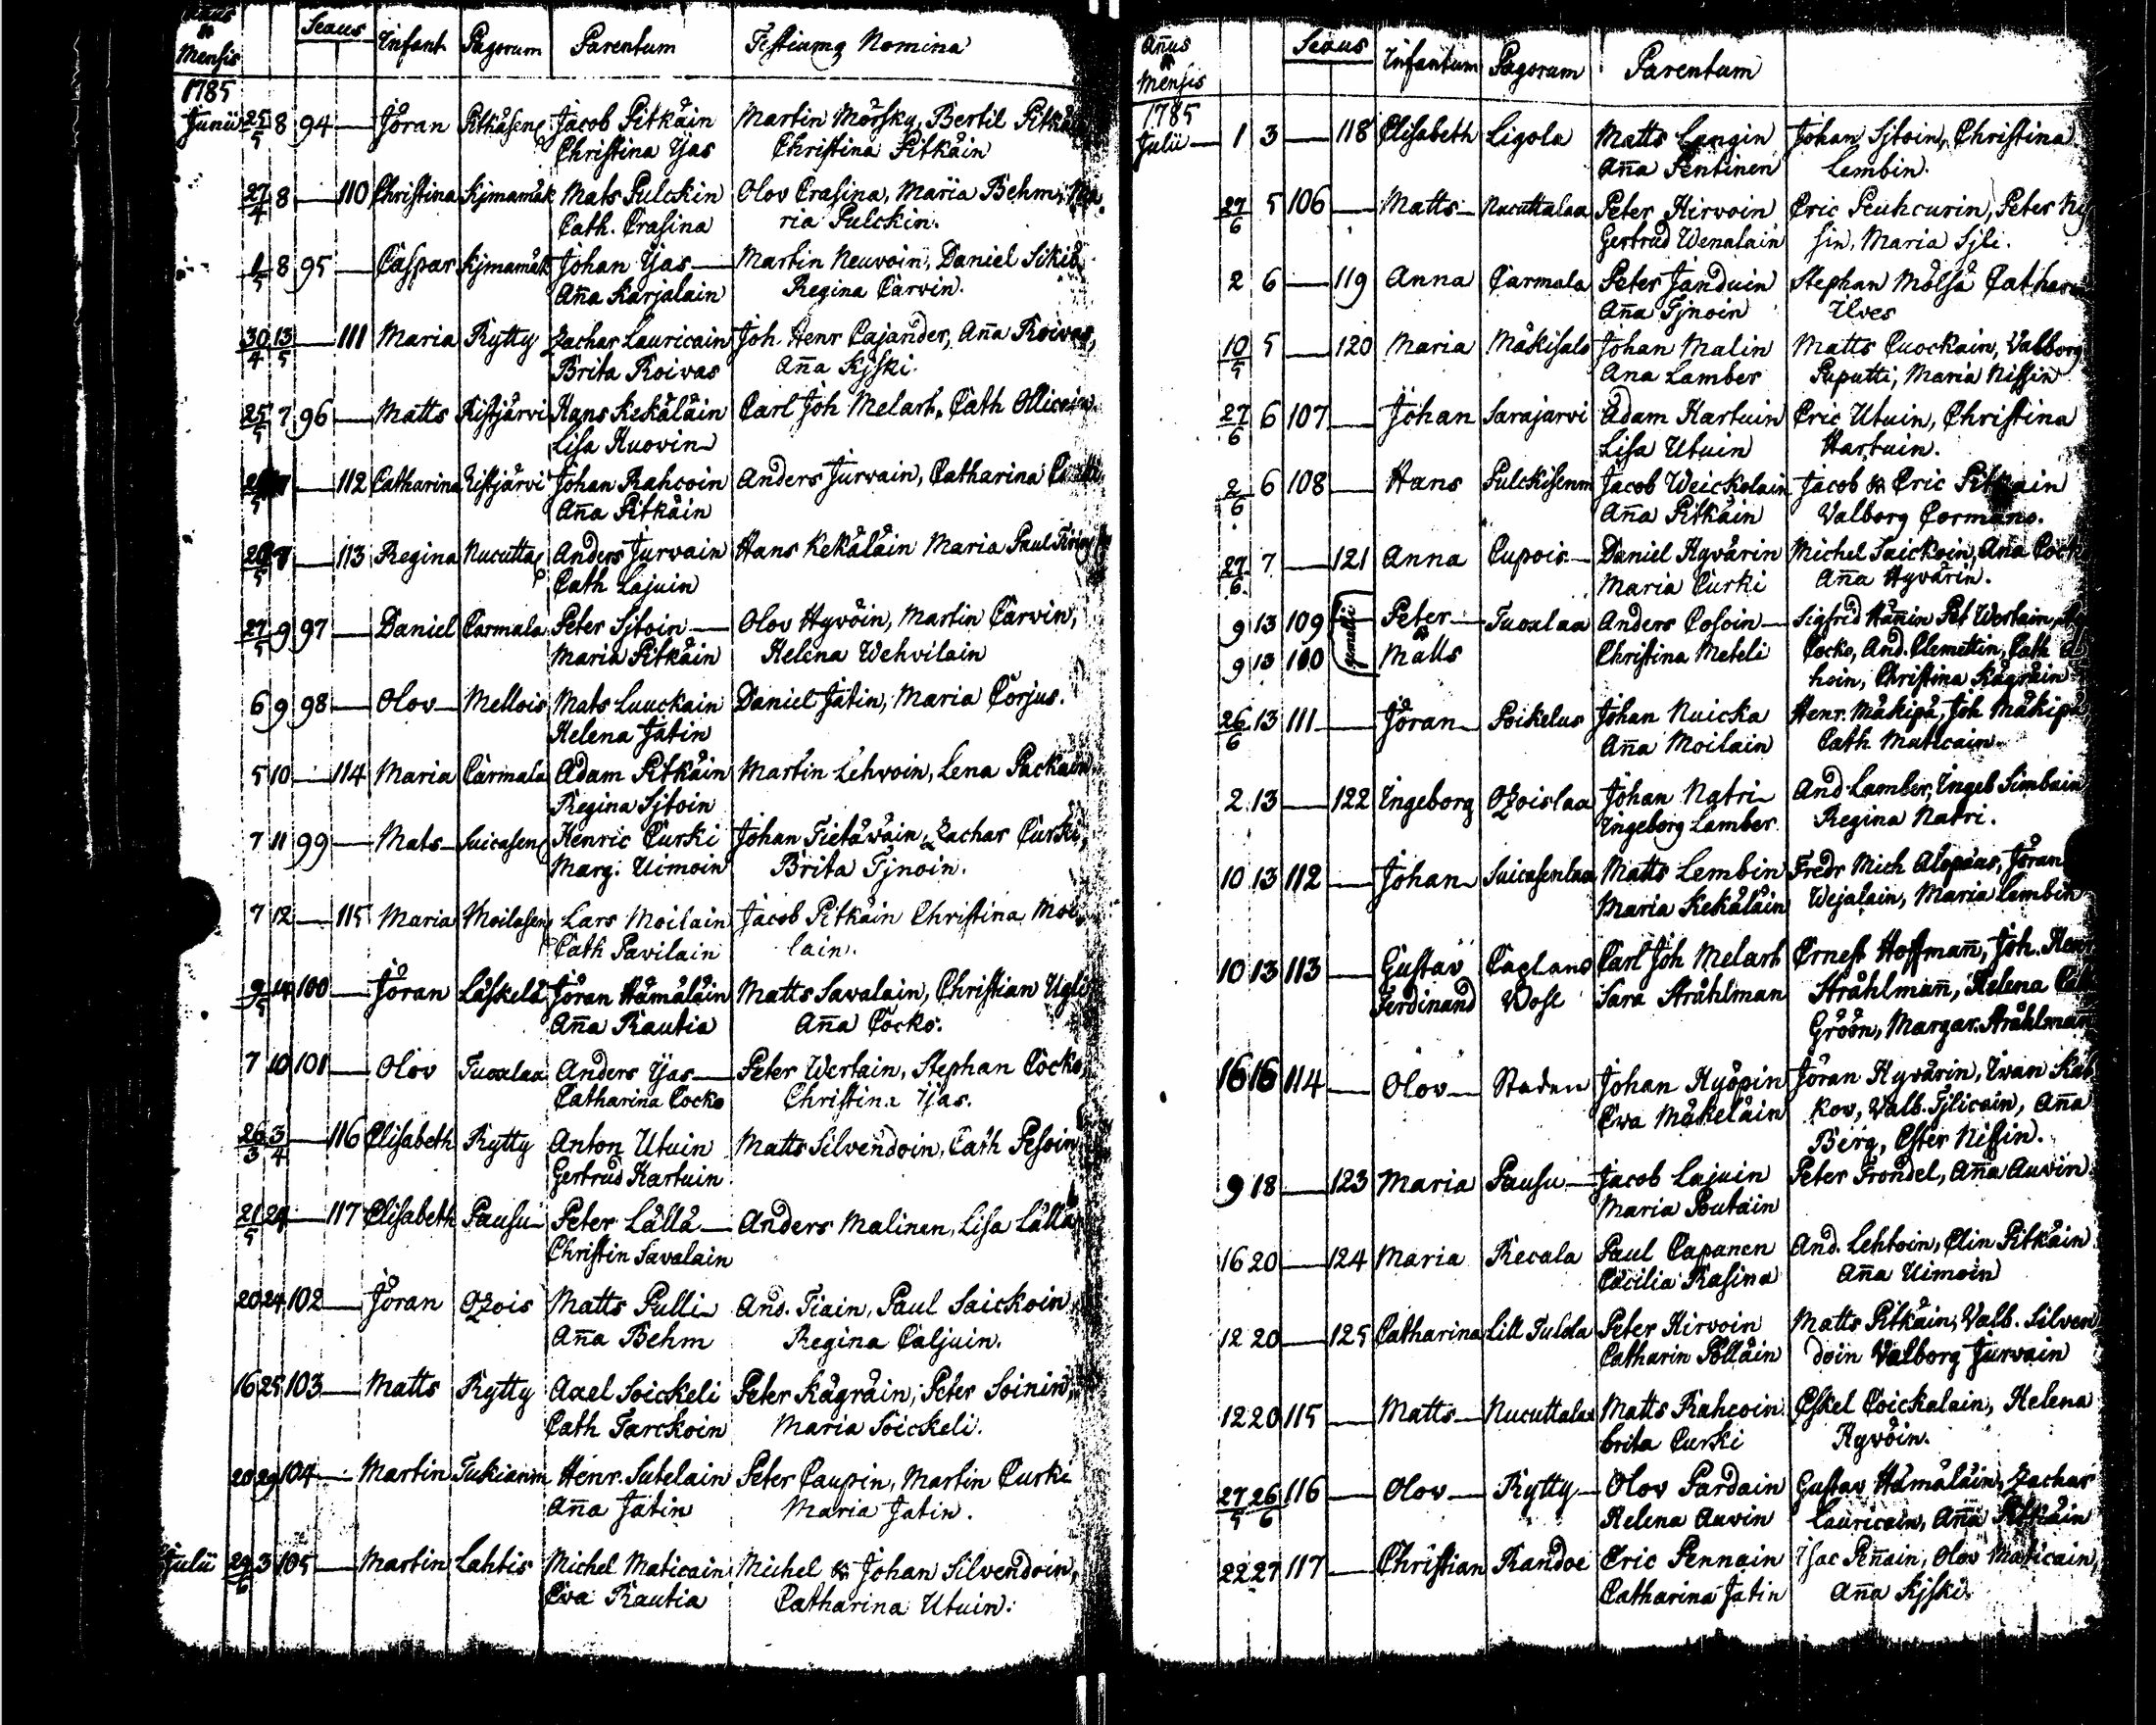 Annus & Mensis Sexus Infant Pagorum Parentum Testiumq Nomina
1785
Junii 25/5 8 94 — Jöran Pitkäsen Jacob Pitkäin Martin Mörsky, Bertil
Christina Yas Christina Pitkäin
27/4 8 — 110 Christina Kjmamäk Mats Pulckin Olov Crasina, Maria Behm, Ma
Cath. Crasina ria Pulckin.
1/5 8 95 — Caspar Kjmamäk Johan Yas — Martin Neuvoin, Daniel
Aña Karjalain Regina Carvin.
30/4 13/5 — 111 Maria Rytty Zachar Lauricain Joh. Henr Cajander, Aña Roivas,
Brita Roivas Aña Kjski.
25/5 7 96 — Matts Ristjärvi Hans Kekäläin Carl Joh Melart, Cath
Lisa Huovin
— 112 Catharina Ristjärvi Johan Rahcoin Anders Jurvain, Catharina
Aña Pitkäin
7 — 113 Regina Nucutta Anders Jurvain Hans Kekäläin Maria
Cath Lajuin
27/5 9 97 — Daniel Carmala Peter Sjtoin — Olov Hyvöin, Martin Carvin,
Maria Pitkäin Helena Wehvilain
6 9 98 — Olov — Mellois Mats Luuckain Daniel Jatin, Maria Corjus.
Helena Jatin
5 10 — 114 Maria Carmala Adam Pitkäin Martin Lehvoin, Lena Packain
Regina Sjtoin
7 11 99 — Mats — Suicasen Henric Curki Johan Tietäväin, Zachar Curki,
Marg. Uimoin Brita Tjnoin.
7 12 — 115 Maria Moilasen Lars Moilain Jacob Pitkäin Christina Moi
Cath Pavilain lain.
9/5 14 100 — Jöran Läskelä Jöran Hämäläin Matts Savalain, Christian
Aña Rautia Aña Cocko.
7 10 101 — Olov Tuoxlaa Anders Yas — Peter Wertain, Stephan Cocko,
Catharina Cocko Christina Yas.
26/3 3/4 — 116 Elisabeth Rytty Anton Utuin Matts Silvendoin, Cath Pesoin
Gertrud Hartuin
21/5 24 — 117 Elisabeth Pausu — Peter Lällä — Anders Malinen, Lisa Lällä
Christin Savalain
20 24 102 — Jöran Ozois Matts Pulli — And. Tiain, Paul Saickoin
Aña Behm Regina Caljuin.
16 25 103 — Matts Rytty Axel Soickeli Peter Kägräin, Peter Soinin,
Cath Tarckoin Maria Soickeli.
20 29 104 — Martin Tukianm Henr. Sutelain Peter Caupin, Martin Curki
Aña Jatin Maria Jatin.
Julii 29/6 3 105 — Martin Lahtis Michel Maticain Michel & Johan Silvendoin,
Eva Rautia Catharina Utuin.
Añus & Mensis Sexus Infantum Pagorum Parentum
1785
Julii — 1 3 — 118 Elisabeth Ligola Matts Langin Johan Sjtoin, Christina
Aña Pentinen Lembin.
27/6 5 106 — Matts — Nucuttalaa Peter Hirvoin Eric Peuhcurin, Peter
Gertrud Wenalain sin, Maria Sjli.
2 6 — 119 Anna Carmala Peter Janduin Stephan Mölsä
Aña Tjnoin Ilves
10/5 5 — 120 Maria Mäkisalo Johan Malin Matts Cuockain, Valborg
Ana Lamber Puputti, Maria Nissin
27/6 6 107 — Johan Sarajarvi Adam Hartuin Eric Utuin, Christina
Lisa Utuin Hartuin.
2/6 6 108 — Hans Pulckisenm Jacob Weickolain Jacob & Eric Pitkain
Aña Pitkäin Valborg Cormano.
27/6 7 — 121 Anna Cupois — Daniel Hyvärin Michel Saickoin, Ana
Maria Curki Aña Hyvärin.
9 13 109 gemelli Peter — Tuoxlaa Anders Cosoin — Sigfrid Häñin Pet Wertain,
9 13 100 & Matts Christina Meteli Cocko, And. Clemettin, Cath
hoin, Christina Kägräin
26/6 13 111 — Jöran — Poikelus Johan Nuicka Henr. Mäkipä, Joh Mäkipä
Aña Moilain Cath Maticain.
2 13 — 122 Ingeborg Ozoislaa Johan Natri — And. Lamber, Ingeb Simbain
Ingeborg Lamber Regina Natri.
10 13 112 — Johan — Suicasenlaa Matts Lembin Fredr Mich Alopæus, Jöran
Maria Kekäläin Wejalain, Maria Lembin
10 13 113 — Gustav Caplans Carl Joh Melart Ernest Hoffmañ, Joh. Henr
Ferdinand Bost Sara Stråhlman Stråhlmañ, Helena
Gröön, Margar. Stråhlman
16 16 114 — Olov — Staden Johan Hyöpin Jöran Hyvärin, Ivan
Eva Mäkeläin kov, Valb. Tjlicain, Aña
Berg, Ester Nissin.
9 18 — 123 Maria Pausu — Jacob Lajuin Peter Trondel, Aña Auvin
Maria Poutain
16 20 — 124 Maria Recala Paul Capanen And. Lehtoin, Elin Pitkäin
Cäcilia Rasina Aña Uimoin
12 20 — 125 Catharina Lill Pulola Peter Hirvoin Matts Pitkäin, Valb. Silven
Catharin Pölläin doin Valborg Jurvain
12 20 115 — Matts — Nucuttalaa Matts Rahcoin Eskel Coickalain, Helena
brita Curki Hyvöin.
27/5 26/6 116 — Olov — Rytty — Olov Pardain Gustav Hämäläin, Zachar
Helena Auvin Lauricain, Aña Pitkäin
22 27 117 — Christian Randoe Eric Pennain Isac Peñain, Olov Maticain,
Catharina Jatin Aña Kjski.